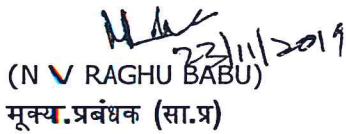 23/11/2019
(N V RAGHU BABU)
मूक्य.प्रबंधक (सा.प्र)